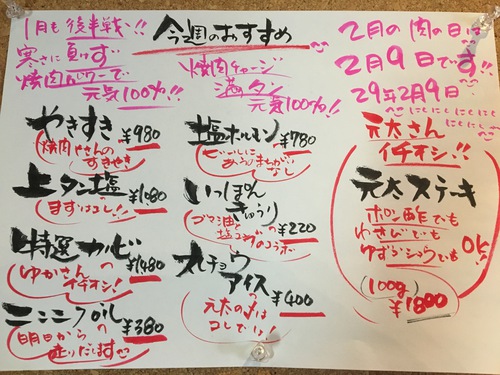 1月も後半戦!!
寒さに負けず
焼肉パワーで
元気100%!!
今週のおすすめ
焼肉チャージ
満タン
元気100%!!
2月の肉の日は
2月9日です!!
29年2月9日
にくにくにくにく
にくにく
やきすき ¥980
焼肉やさんの
すきやき
上タン塩 ¥1080
まずはコレ!!
特選カルビ ¥1480
ゆかさんの
イチオシ!
ニンニクoil ¥380
明日からの
走りだします
塩ホルモン ¥780
ビールに
まちがい
なし
いっぽん
きゅうり ¥220
ゴマ油と
塩コンブのコラボ
丸チョウ
アイス ¥400
元太の〆は
コレでしょ!
元太さん
イチオシ!!
元太ステーキ
ポン酢でも
わさびでも
ゆずこしょうでも
OK!
(100g)
¥1800